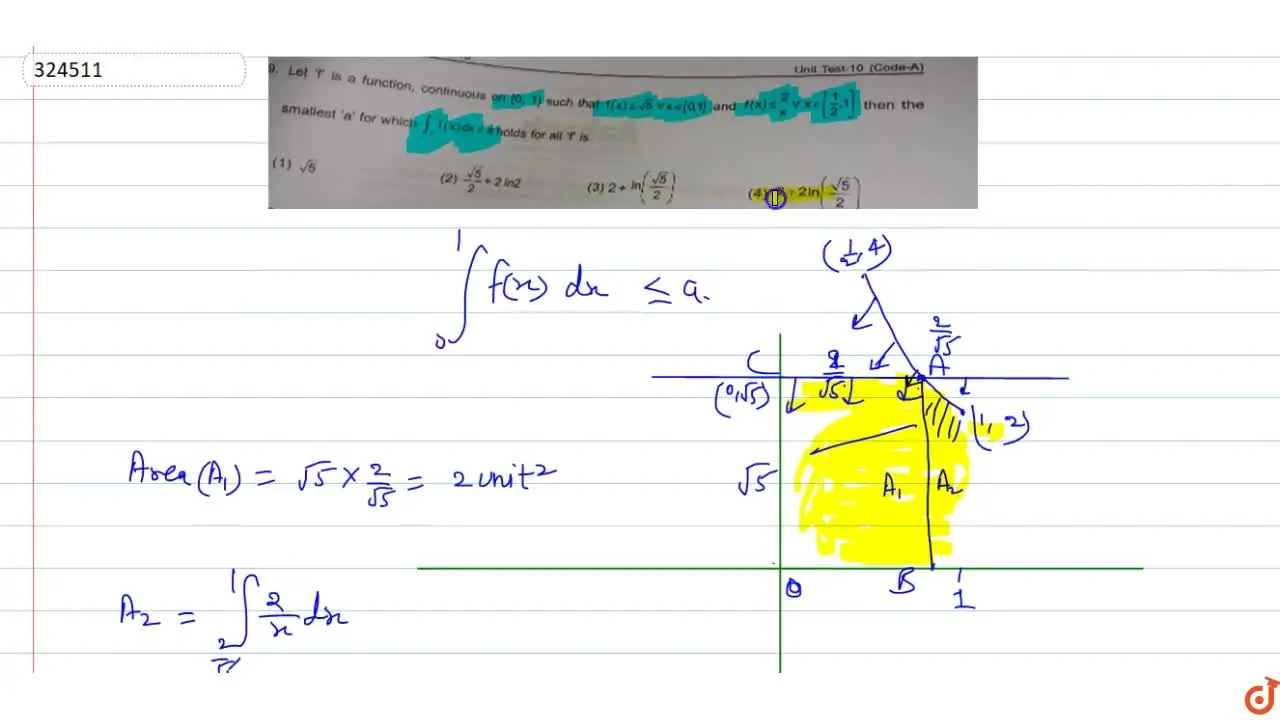 324511
Unit Test-10 (Code-A)
9. Let 'f' is a function, continuous on [0, 1] such that f(x) ≤ √5 ∀ x ∈ [0,1] and f(x) ≤ 2/x ∀ x ∈ [1/2, 1] then the
smallest 'a' for which ∫ f(x)dx ≤ a holds for all 'f' is
(1) √5
(2) √5/2 + 2 ln2
(3) 2 + ln(√5/2)
(4) + 2ln(√5/2)
∫₀¹ f(x) dx ≤ a.
(1/2, 4)
2/√5
C
2/√5
A
(0,√5)
(1, 2)
Area (A₁) = √5 × 2/√5 = 2 unit²
√5
A₁ A₂
0
B
1
A₂ = ∫ 2/x dx
1
2